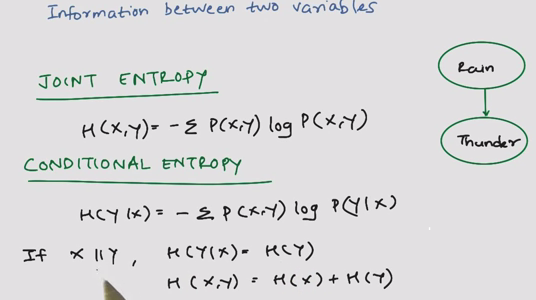 Information between two variables
JOINT ENTROPY
H(X,Y) = - Σ P(X,Y) log P(X,Y)
CONDITIONAL ENTROPY
H(Y|X) = - Σ P(X,Y) log P(Y|X)
If X ∥ Y, H(Y|X) = H(Y)
H(X,Y) = H(X) + H(Y)
Rain
Thunder